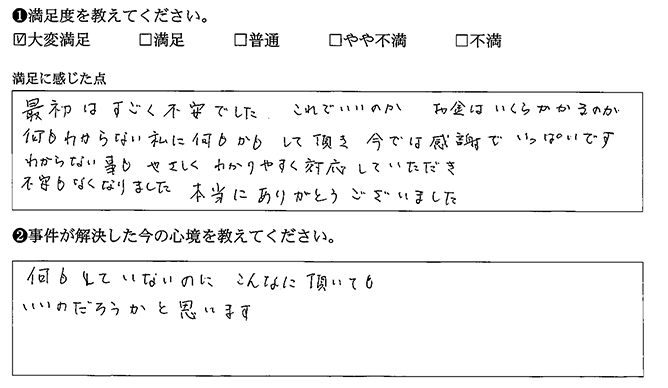 ❶満足度を教えてください。
☑大変満足 □満足 □普通 □やや不満 □不満
満足に感じた点
最初は すごく不安でした これでいいのか お金は いくらかかるのか
何もわからない私に何もかも して頂き 今では感謝で いっぱいです
わからない事も やさしく わかりやすく対応していただき
不安もなくなりました 本当にありがとうございました
❷事件が解決した今の心境を教えてください。
何もしていないのに こんなに頂いても
いいのだろうかと思います